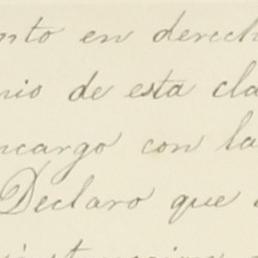 nto en derech
nio de esta cla
ncargo con la
Declaro que